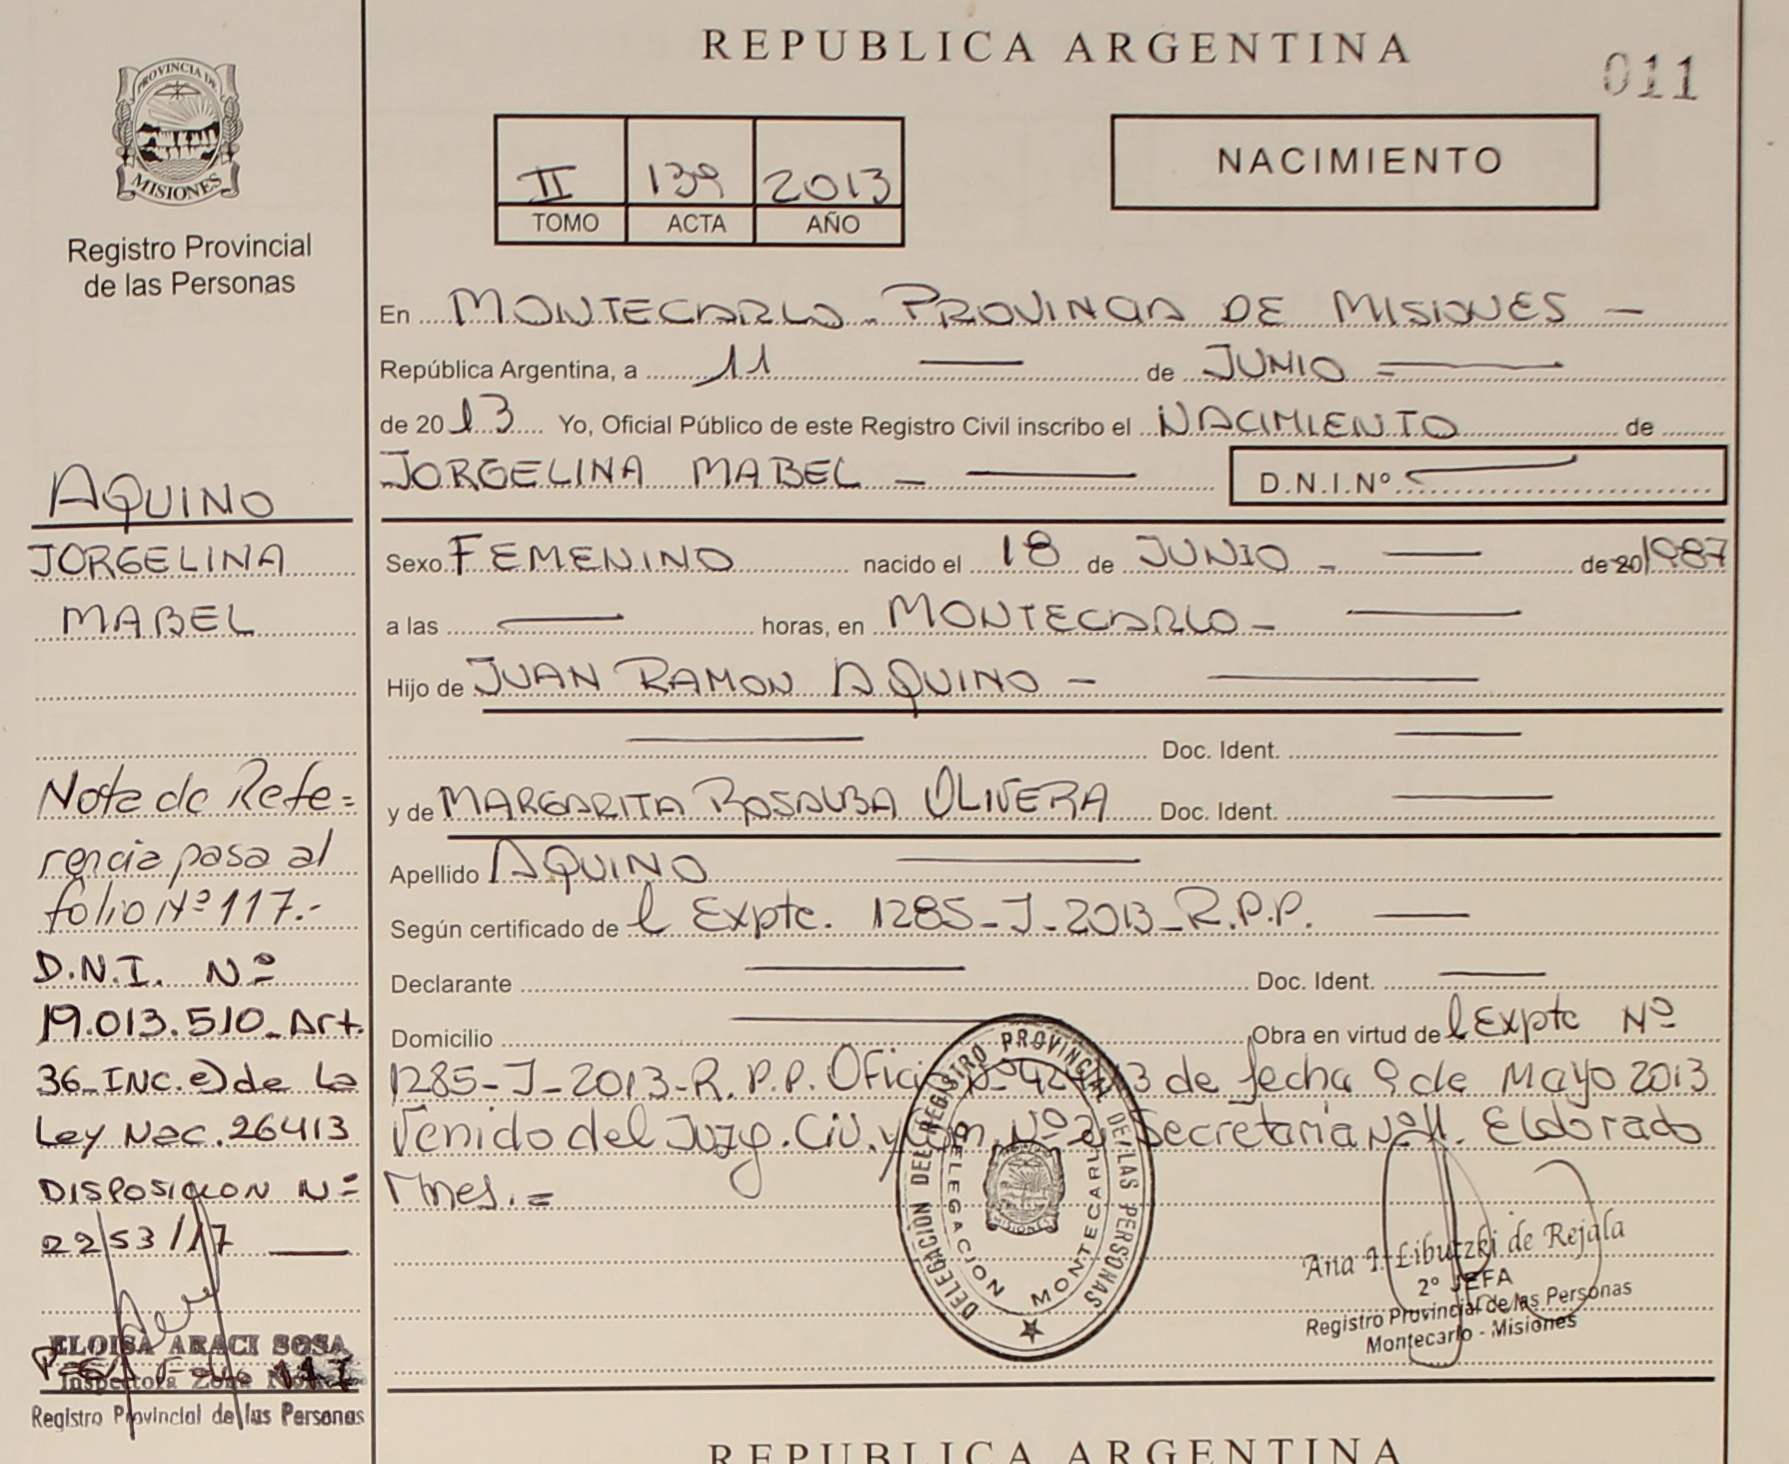 REPUBLICA ARGENTINA
011
PROVINCIA DE
MISIONES
Registro Provincial
de las Personas
II 139 2013
TOMO ACTA AÑO
NACIMIENTO
En MONTECARLO - PROVINCIA DE MISIONES —
República Argentina, a 11 — de JUNIO =
de 2013 Yo, Oficial Público de este Registro Civil inscribo el NACIMIENTO de
JORGELINA MABEL — D.N.I.Nº
Sexo FEMENINO nacido el 18 de JUNIO - — de 20 1987
a las — horas, en MONTECARLO - —
Hijo de JUAN RAMON AQUINO - —
Doc. Ident. —
y de MARGARITA ROSALBA OLIVERA Doc. Ident. —
Apellido AQUINO —
Según certificado de l Expte. 1285-J-2013-R.P.P. —
Declarante — Doc. Ident. —
Domicilio — Obra en virtud de l Expte Nº
1285-J-2013-R.P.P. Oficio Nº de fecha 9 de Mayo 2013
Venido del Juzg. Civ. y Com. Nº 2 Secretaria Nº Eldorado
Mnes. =
AQUINO
JORGELINA
MABEL
Nota de Refe=
rencia pasa al
folio Nº 117.-
D.N.I. Nº
19.013.510_Art.
36_INC.e) de La
Ley Nac. 26413
DISPOSICION Nº
2253/17 —
ELOISA ARACI SOSA
117
Inspectora Zona
Registro Provincial de las Personas
DELEGACIÓN DEL REGISTRO PROVINCIAL DE LAS PERSONAS
DELEGACION MONTECARLO
MISIONES
Ana I. Libutzki de Rejala
2º JEFA
Registro Provincial de las Personas
Montecarlo - Misiones
REPUBLICA ARGENTINA